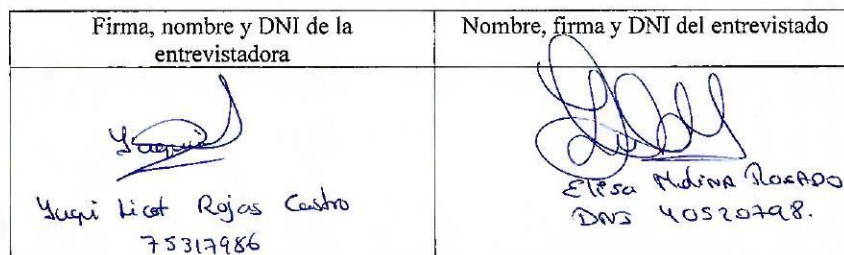 Firma, nombre y DNI de la
entrevistadora
Nombre, firma y DNI del entrevistado
Yuqui
Yuqui Licet Rojas Castro
75317986
Elisa Molina Rosado
DNI 40520798.